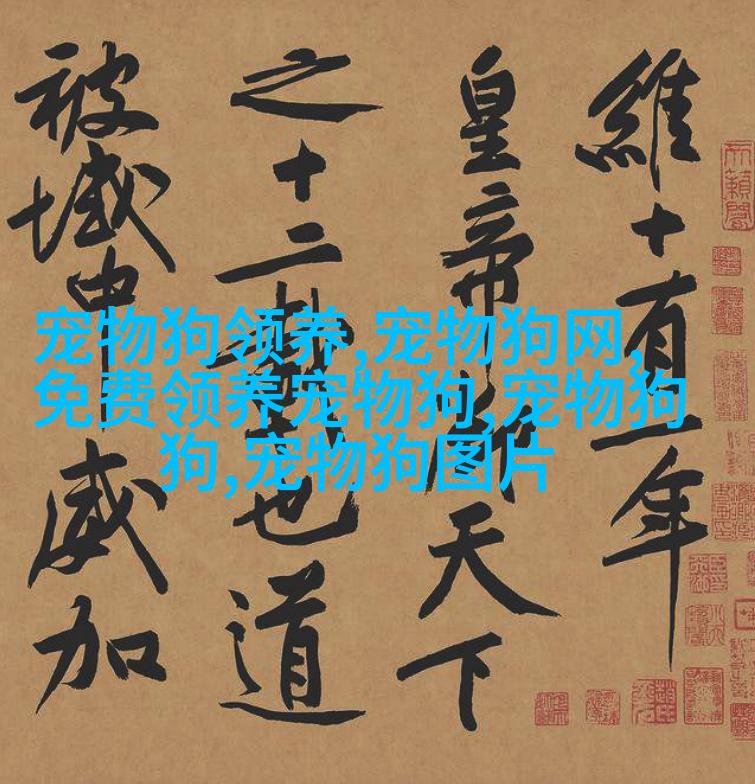 維十有一年
皇帝御天下
之十二載也道
被域中威加
宠物狗领养,宠物狗网,
免费领养宠物狗,宠物狗
狗,宠物狗图片